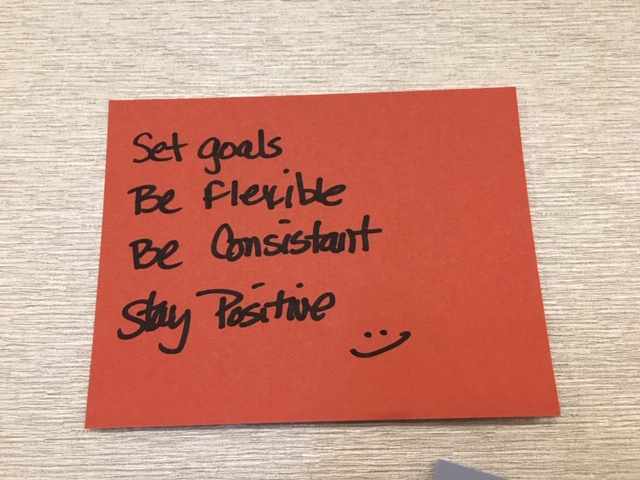 Set goals
Be flexible
Be Consistant
Stay Positive